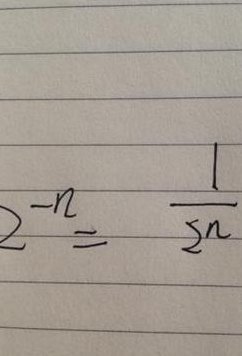 2^{-n} = \frac{1}{2^n}